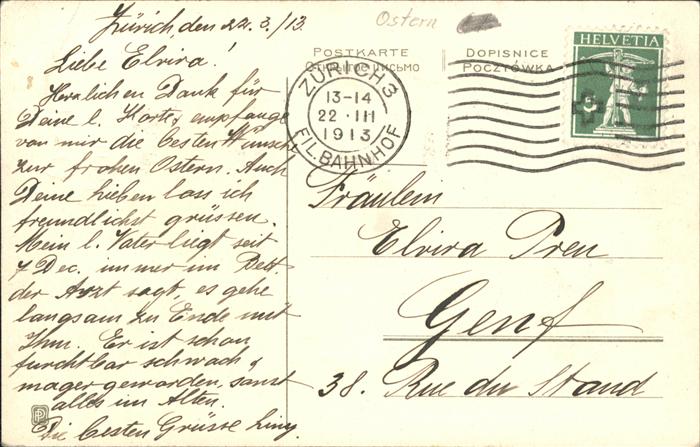 Zürich den 22.3./13.
Ostern
Liebe Elvira!
Herzlichen Dank für
Deine l. Karte, empfange
von mir die besten Wünsche
zur frohen Ostern. Auch
Deine lieben lass ich
freundlichst grüssen.
Mein l. Vater liegt seit
7 Dec. immer im Bett
der Arzt sagt, es gehe
langsam zu Ende mit
Ihm. Er ist schon
furchtbar schwach &
mager geworden, sonst
alles im Alten.
Die besten Grüsse Liny.
POSTKARTE
Открытое письмо
DOPISNICE
POCZTÓWKA
ZÜRICH 3
13-14
22.III
1913
FIL.BAHNHOF
HELVETIA
5
Fräulein
Elvira Preu
Genf
38. Rue du Stand